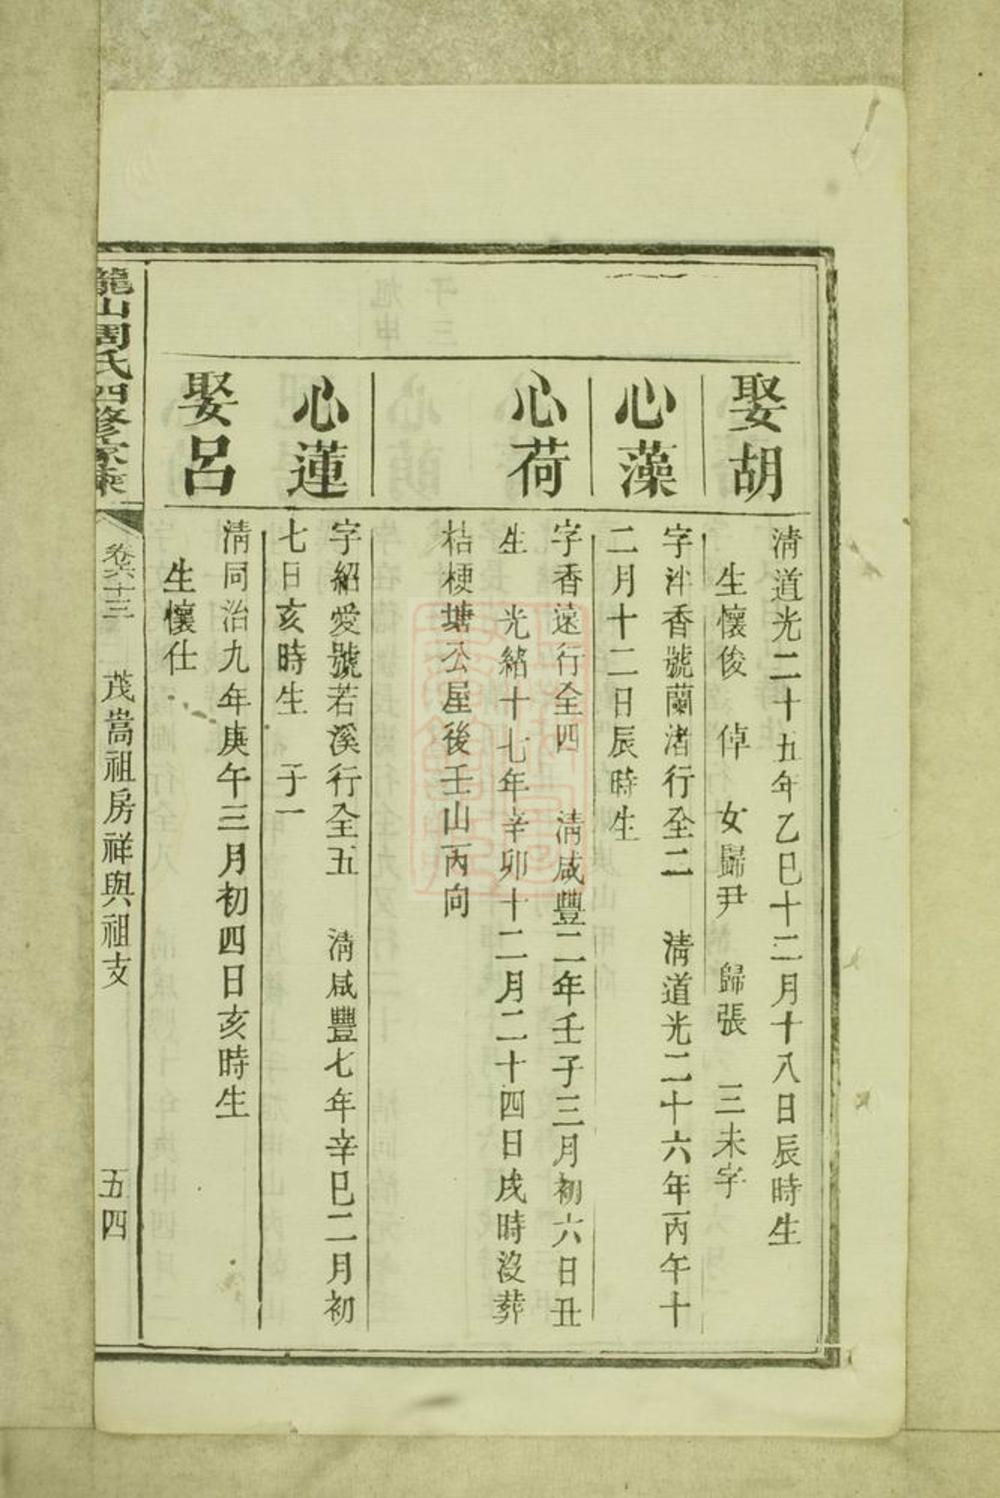 娶胡
清道光二十五年乙巳十二月十八日辰時生
生懷俊　倬　女歸尹　歸張　三未字
心藻
字泮香號蘭渚行全二　清道光二十六年丙午十
二月十二日辰時生
心荷
字香遠行全四　清咸豐二年壬子三月初六日丑
生　光緒十七年辛卯十二月二十四日戌時沒葬
桔梗塘公屋後壬山丙向
心蓮
字紹愛號若溪行全五　清咸豐七年辛巳二月初
七日亥時生　子一
娶呂
清同治九年庚午三月初四日亥時生
生懷仕
龍山周氏四修家乘
卷六十三
茂嵩祖房祥與祖支
五四